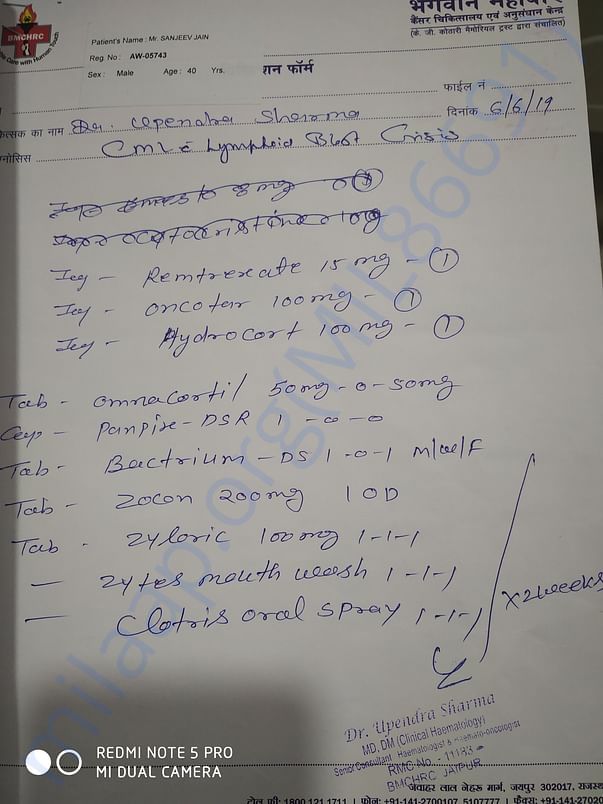 भगवान महावीर
कैंसर चिकित्सालय एवं अनुसंधान केन्द्र
(के. जी. कोठारी मैमोरियल ट्रस्ट द्वारा संचालित)
BMCHRC
Care with Human Touch
Patient's Name : Mr. SANJEEV JAIN
Reg No : AW-05743
Sex : Male Age : 40 Yrs.
शन फॉर्म
फाईल नं
कित्सक का नाम Dr. Upendra Sharma दिनांक 6/6/19
नोसिस CML c Lymphoid Blast Crisis
Inj - Remtrexate 15 mg - 1
Inj - oncotar 100mg - 1
Inj - Hydrocort 100 mg - 1
Tab - omnacortil 50mg-0-50mg
Cap - Panpire-DSR 1-0-0
Tab - Bactrium-DS 1-0-1 M/W/F
Tab - Zocon 200mg 1 OD
Tab - Zyloric 100mg 1-1-1
- Zytes mouth wash 1-1-1
- Clotris oral spray 1-1-1
x2weeks
Dr. Upendra Sharma
MD, DM (Clinical Haematology)
Senior Consultant Haematologist & Haemato-oncologist
RMC No.
BMCHRC JAIPUR
जवाहर लाल नेहरू मार्ग, जयपुर 302017, राजस्
टोल फ्री: 1800 121 1711 | फोन: +91-141-2700107, 5107777 | फैक्स: +91-141-
milaap.org(MIL866691)
REDMI NOTE 5 PRO
MI DUAL CAMERA